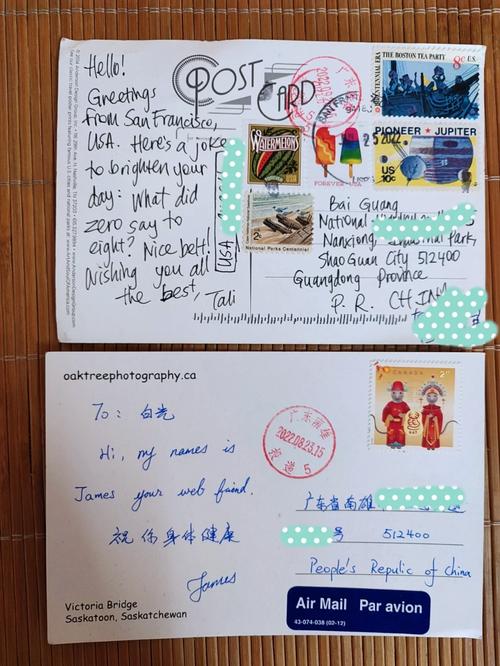 POST CARD
Hello!
Greetings
from San Francisco,
USA. Here's a joke
to brighten your
day: What did
zero say to
eight? Nice belt!
Wishing you all
the best, Tali
THE BOSTON TEA PARTY
8c U.S.
PIONEER ★ JUPITER
US
10c
WATERMELONS
FOREVER USA
2c
National Parks Centennial
USA
25 2022
Bai Guang
National
Nanxiong, Industrial Park,
ShaoGuan City 512400
Guangdong Province
P. R. CHINA
oaktreephotography.ca
To: 白光
Hi, my names is
James your web friend.
祝你身体健康
James
CANADA
广东南雄
2022.08.23.15
5
广东省南雄
号 512400
People's Repulic of China
Air Mail Par avion
43-074-038 (02-12)
Victoria Bridge
Saskatoon, Saskatchewan